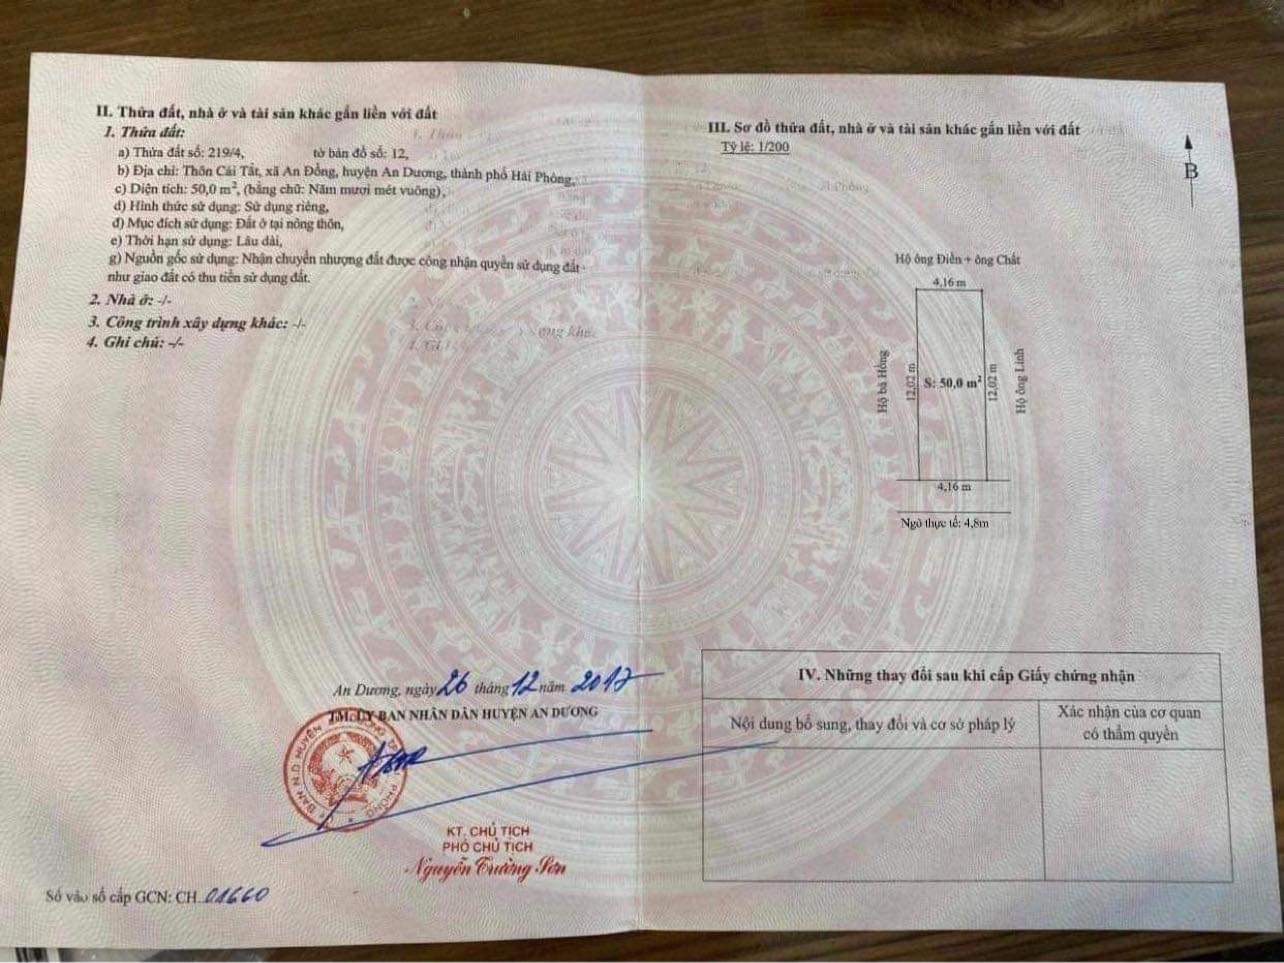 II. Thửa đất, nhà ở và tài sản khác gắn liền với đất
1. Thửa đất:
a) Thửa đất số: 219/4, tờ bản đồ số: 12,
b) Địa chỉ: Thôn Cái Tắt, xã An Đồng, huyện An Dương, thành phố Hải Phòng,
c) Diện tích: 50,0 m², (bằng chữ: Năm mươi mét vuông),
d) Hình thức sử dụng: Sử dụng riêng,
đ) Mục đích sử dụng: Đất ở tại nông thôn,
e) Thời hạn sử dụng: Lâu dài,
g) Nguồn gốc sử dụng: Nhận chuyển nhượng đất được công nhận quyền sử dụng đất
như giao đất có thu tiền sử dụng đất.
2. Nhà ở: -/-
3. Công trình xây dựng khác: -/-
4. Ghi chú: -/-
An Dương, ngày 26 tháng 12 năm 2017
TM. ỦY BAN NHÂN DÂN HUYỆN AN DƯƠNG
KT. CHỦ TỊCH
PHÓ CHỦ TỊCH
Nguyễn Trường Sơn
Số vào sổ cấp GCN: CH 01660
III. Sơ đồ thửa đất, nhà ở và tài sản khác gắn liền với đất
Tỷ lệ: 1/200
B
Hộ ông Điền + ông Chất
4,16 m
Hộ bà Hồng
12,02 m
S: 50,0 m²
12,02 m
Hộ ông Linh
4,16 m
Ngõ thực tế: 4,8m
IV. Những thay đổi sau khi cấp Giấy chứng nhận
Nội dung bổ sung, thay đổi và cơ sở pháp lý
Xác nhận của cơ quan
có thẩm quyền